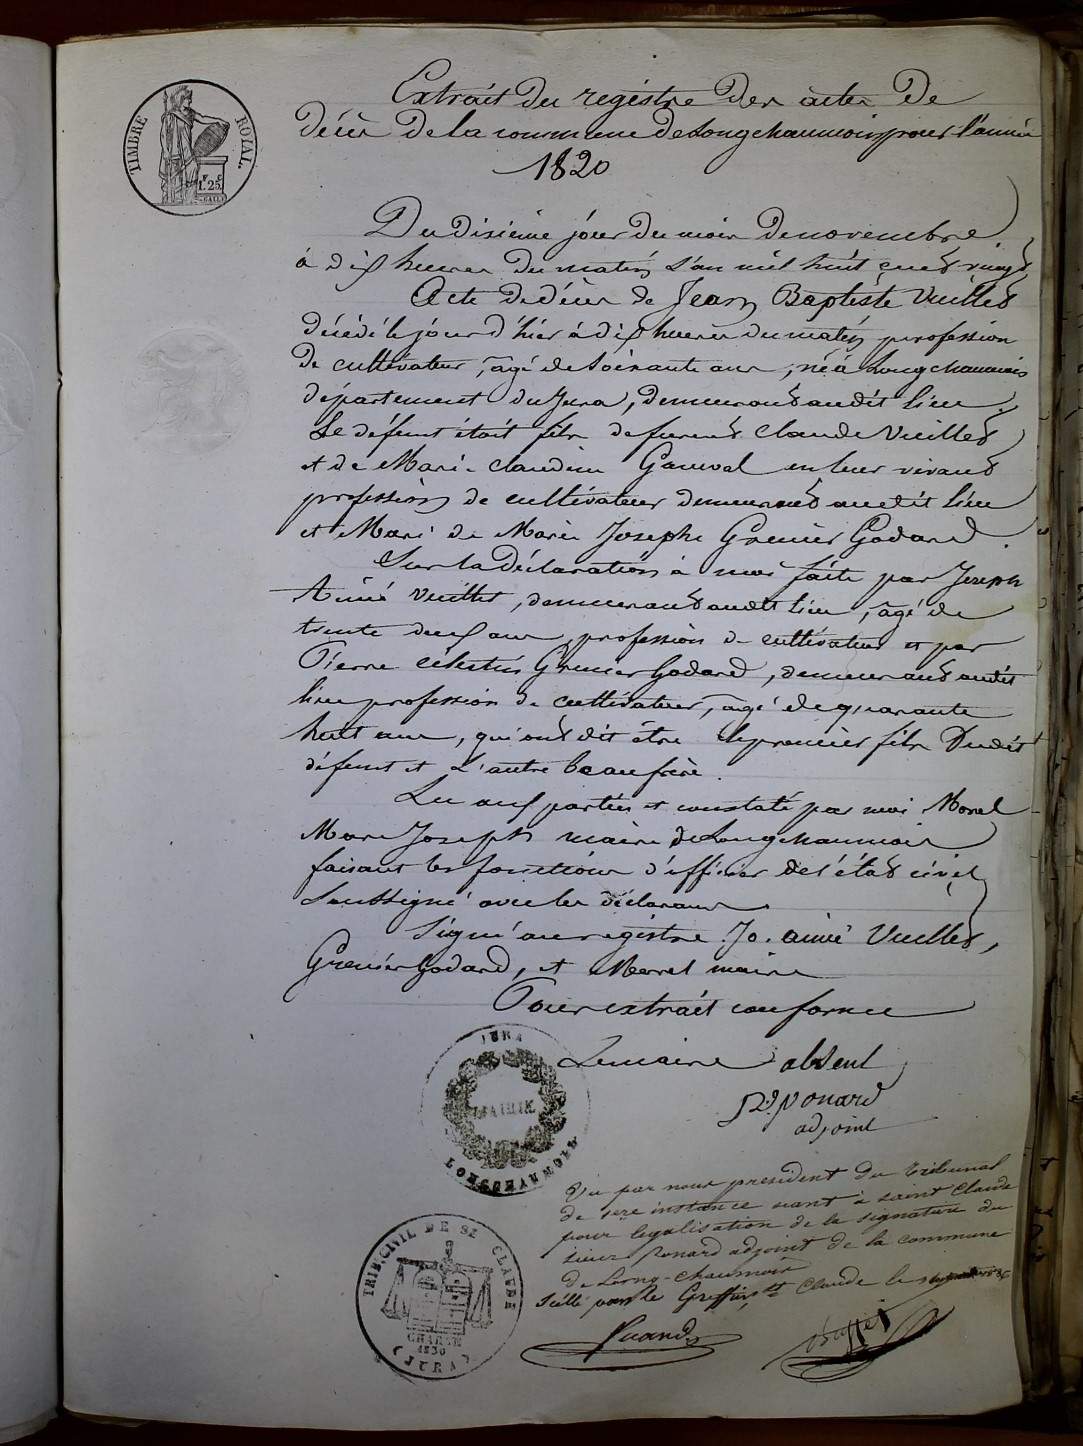 TIMBRE ROYAL
1.F 25.C
Extrait du régistre des actes de
décès de la commune de Longchaumois pour l'année
1820
Du dixième jour du mois de novembre
à dix heures du matin l'an mil huit cent vingt
Acte de décès de Jean Baptiste Vuillet
décédé le jour d'hier à dix heures du matin profession
de cultivateur, âgé de soixante ans, né à Longchaumois
département du Jura, demeurant audit lieu.
Le défunt était fils de furent Claude Vuillet
et de Marie claudine Gauval en leur vivant
profession de cultivateur demeurant audit lieu
et Mari de Marie Josephe Grenier Godard.
Sur la Déclaration à moi faite par Joseph
Aimé Vuillet, demeurant audit lieu, âgé de
trente deux ans, profession de cultivateur et par
Pierre célestin Grenier Godard, demeurant audit
lieu profession de cultivateur, âgé de quarante
huit ans, qui ont dit être le premier fils Dudit
défunt et l'autre beaufrère.
Lu aux parties et constaté par moi Morel
Marc Joseph maire de Longchaumois
faisant les fonctions d'officier de l'état civil
soussigné avec les déclarans.
Signé au registre Jo. aimé Vuillet,
Grenier Godard, et Morel maire
Pour extrait conforme
Le maire absent
Ponard
adjoint
JURA
MAIRIE
LONGCHAUMOIS
Vu par nous président du Tribunal
de 1ère instance séant à saint Claude
pour légalisation de la signature du
sieur Ponard adjoint de la commune
de Long-chaumois
Scellé par le Greffier, St Claude le
TRIB. CIVIL DE ST CLAUDE
CHARTE
1830
(JURA)